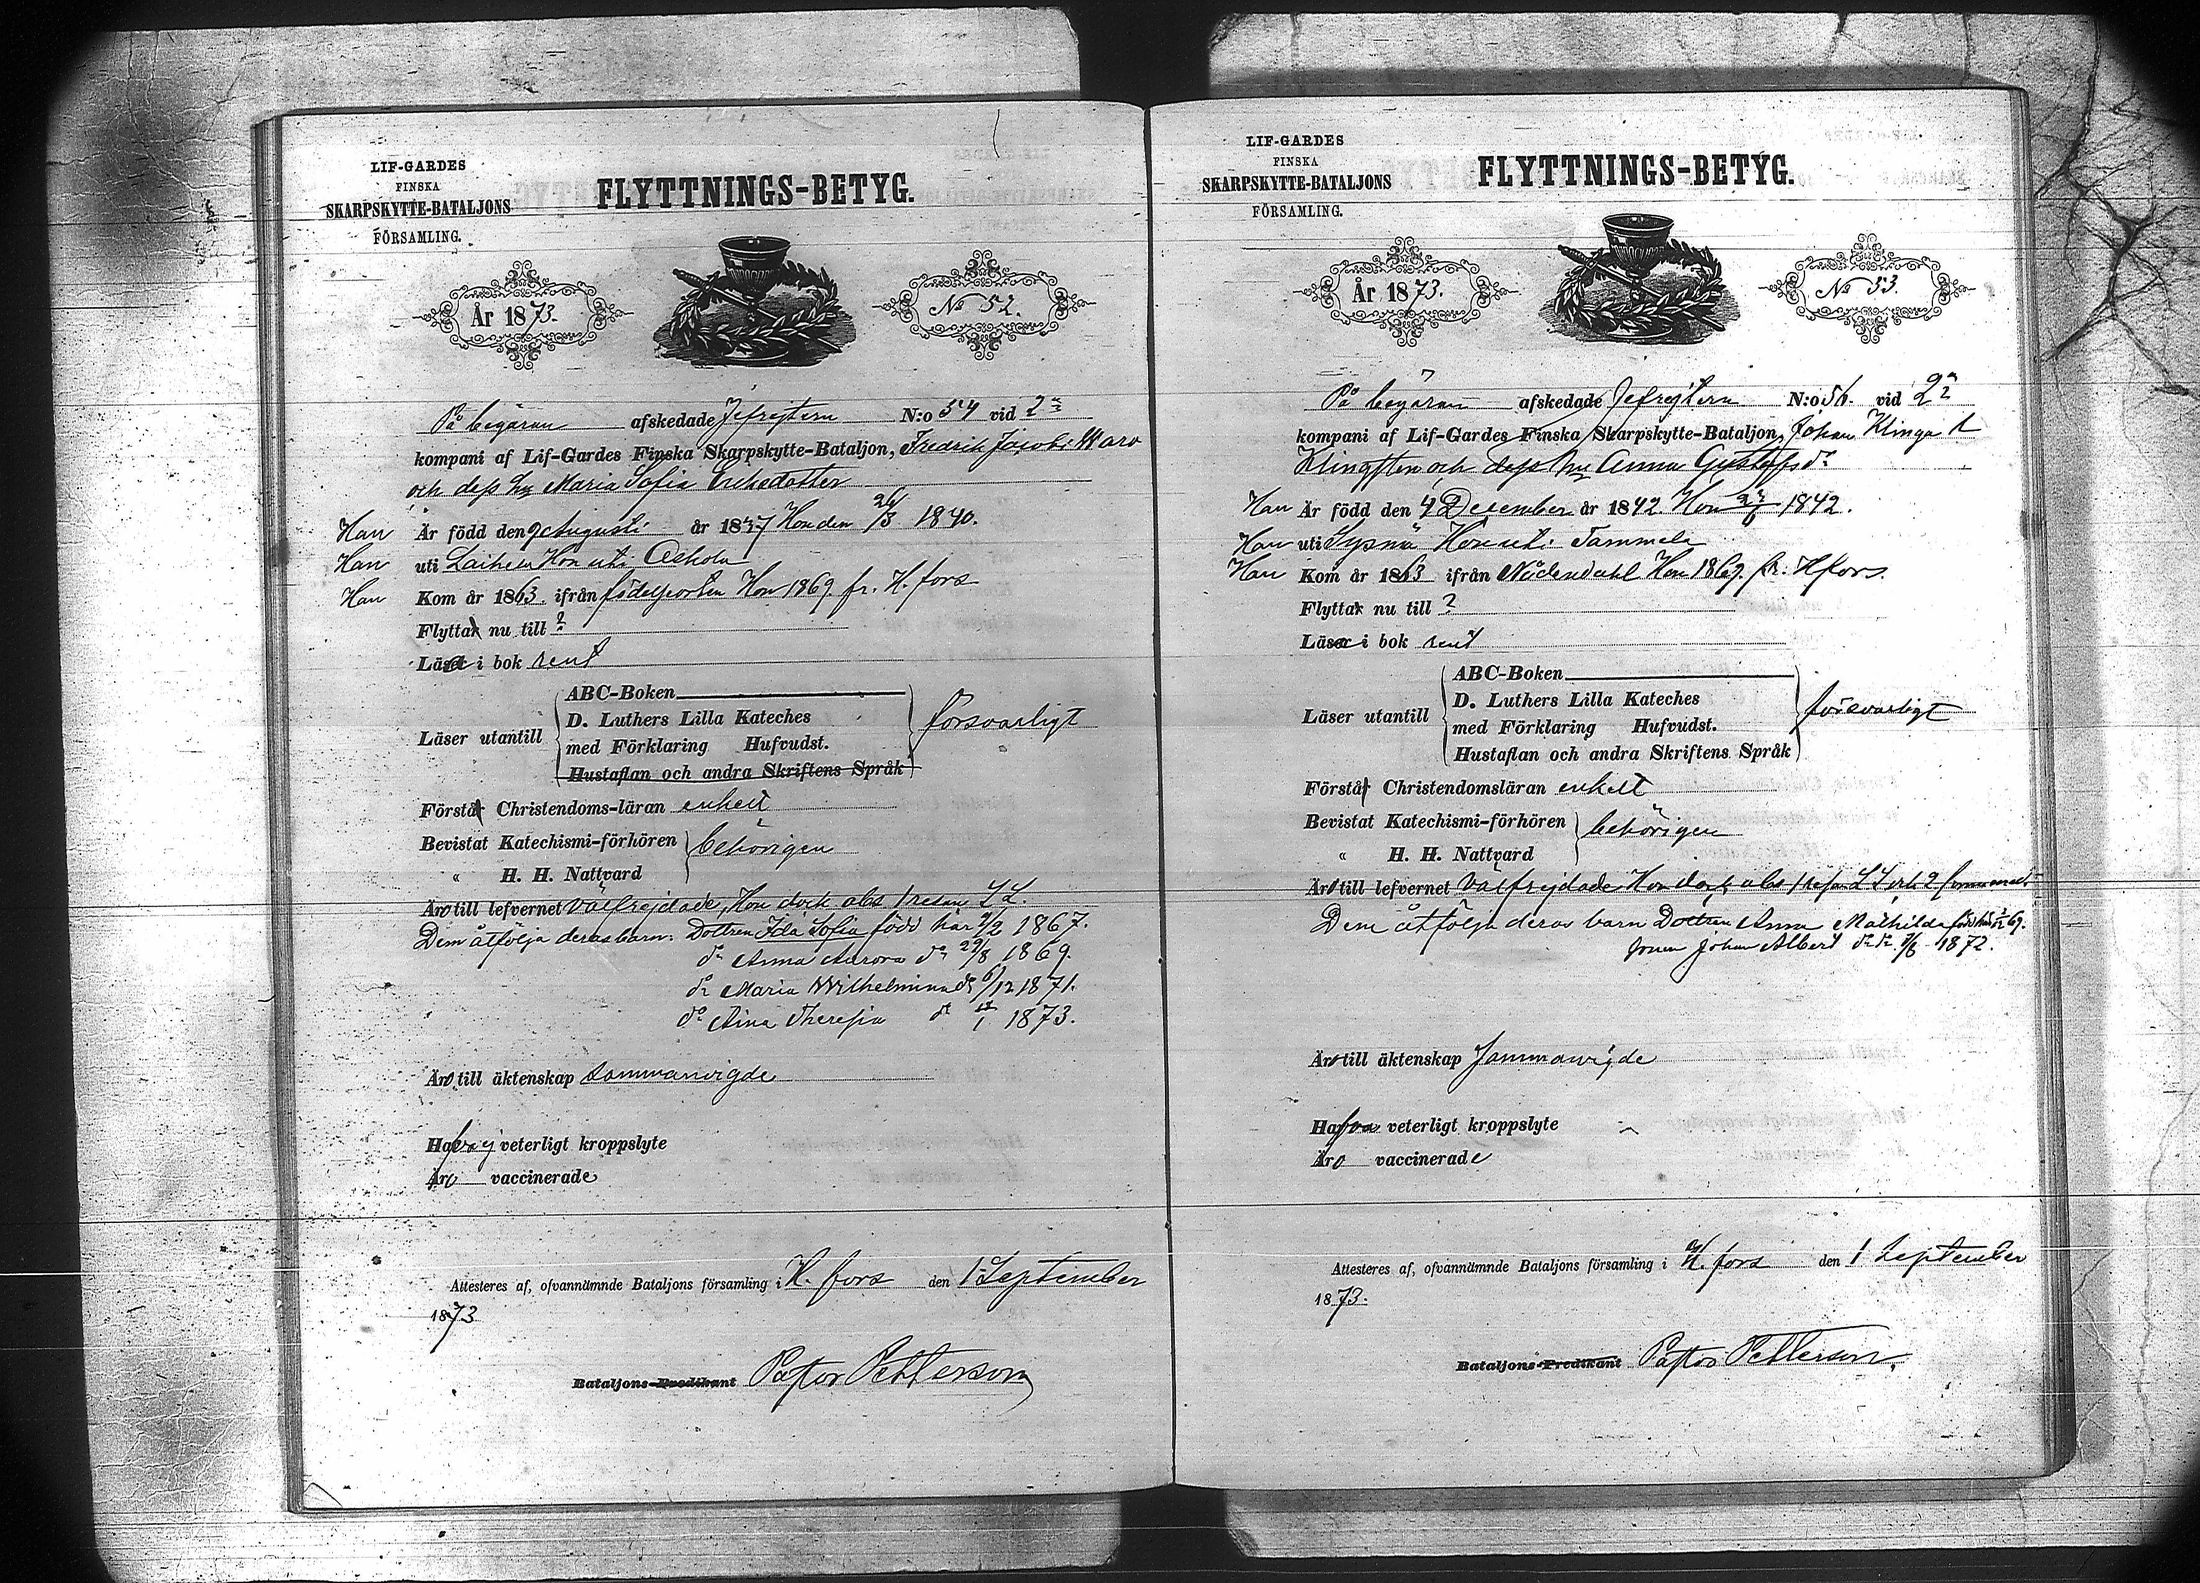 LIF-GARDES
FINSKA
SKARPSKYTTE-BATALJONS
FÖRSAMLING.
FLYTTNINGS-BETYG.
År 1873.
No 52.
På begäran afskedade Jefrejtern N:o 54 vid 2a
kompani af Lif-Gardes Finska Skarpskytte-Bataljon, Fredrik Jacobs
och dess hu Maria Sofia Eriksdotter
Han Är född den 9 Augusti år 18 7 Hon den 26/3 1840.
Han uti Laihela Hon uti
Han Kom år 1863 ifrån födelseorten Hon 1869 fr. H.fors
Flytta nu till ?
Läsa i bok rent
Läser utantill
ABC-Boken
D. Luthers Lilla Kateches
med Förklaring Hufvudst.
Hustaflan och andra Skriftens Språk
försvarligt
Förstå Christendoms-läran enkelt
Bevistat Katechismi-förhören
" H. H. Nattvard
behörigen
Äro till lefvernet välfrejdade, Hon dock abs 1 resan LL.
Dem åtfölja deras barn: Dottren Ida Sofia född här 9/2 1867.
do Anna Aurora do 29/8 1869.
do Maria Wilhelmina do 6/12 1871.
do Aina Theresia do 1873.
Äro till äktenskap sammanvigde
Hafva ej veterligt kroppslyte
Äro vaccinerade
Attesteres af, ofvannämnde Bataljons församling i H.fors den 1 September
1873
Bataljons-Predikant Pastor Petterson
LIF-GARDES
FINSKA
SKARPSKYTTE-BATALJONS
FÖRSAMLING.
FLYTTNINGS-BETYG.
År 1873.
No 53.
På begäran afskedade Jefrejtern N:o 56. vid 2a
kompani af Lif-Gardes Finska Skarpskytte-Bataljon, Johan Klinga
och dess hu Anna Gustafsdr
Han Är född den 4 December år 1842 Hon 1842.
Han uti Sysmä Hon uti Tammela
Han Kom år 1863 ifrån Nådendahl Hon 1869. fr. Hfors.
Flytta nu till ?
Läsa i bok rent
Läser utantill
ABC-Boken
D. Luthers Lilla Kateches
med Förklaring Hufvudst.
Hustaflan och andra Skriftens Språk
försvarligt
Förstå Christendomsläran enkelt
Bevistat Katechismi-förhören
" H. H. Nattvard
behörigen
Äro till lefvernet välfrejdade Hon dock abs 1 resan LL och 2
Dem åtfölja deras barn Dottren Anna Mathilda född här 69.
sonen Johan Albert do do 1872.
Äro till äktenskap sammanvigde
Hafva veterligt kroppslyte
Äro vaccinerade
Attesteres af, ofvannämnde Bataljons församling i H.fors den 1 September
1873.
Bataljons-Predikant Pastor Petterson.